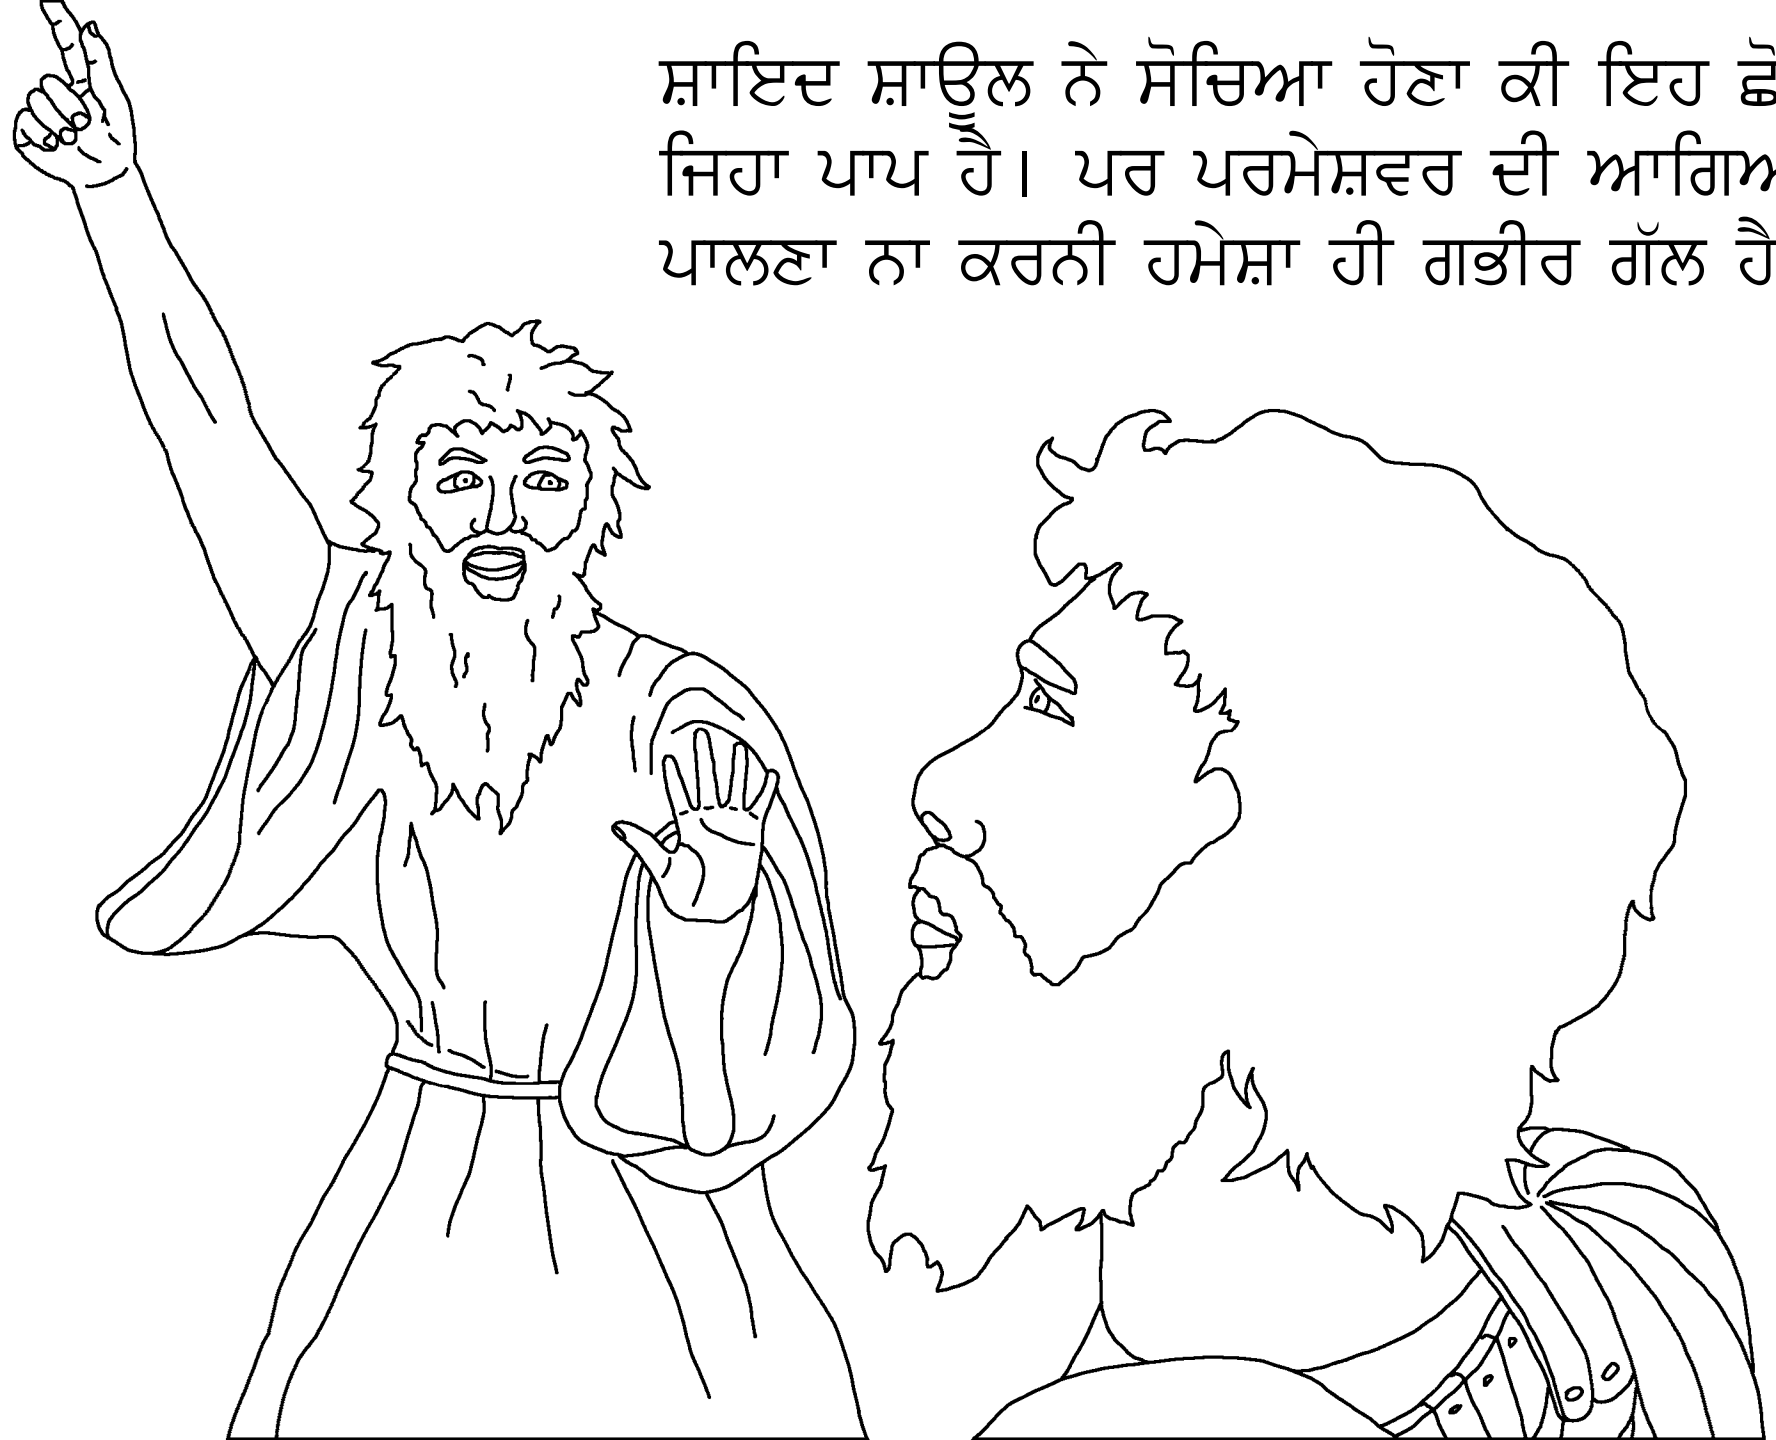 ਸ਼ਾਇਦ ਸ਼ਾਊਲ ਨੇ ਸੋਚਿਆ ਹੋਣਾ ਕੀ ਇਹ
ਜਿਹਾ ਪਾਪ ਹੈ। ਪਰ ਪਰਮੇਸ਼ਵਰ ਦੀ
ਪਾਲਣਾ ਨਾ ਕਰਨੀ ਹਮੇਸ਼ਾ ਹੀ ਗਭੀਰ ਗੱਲ ਹੈ